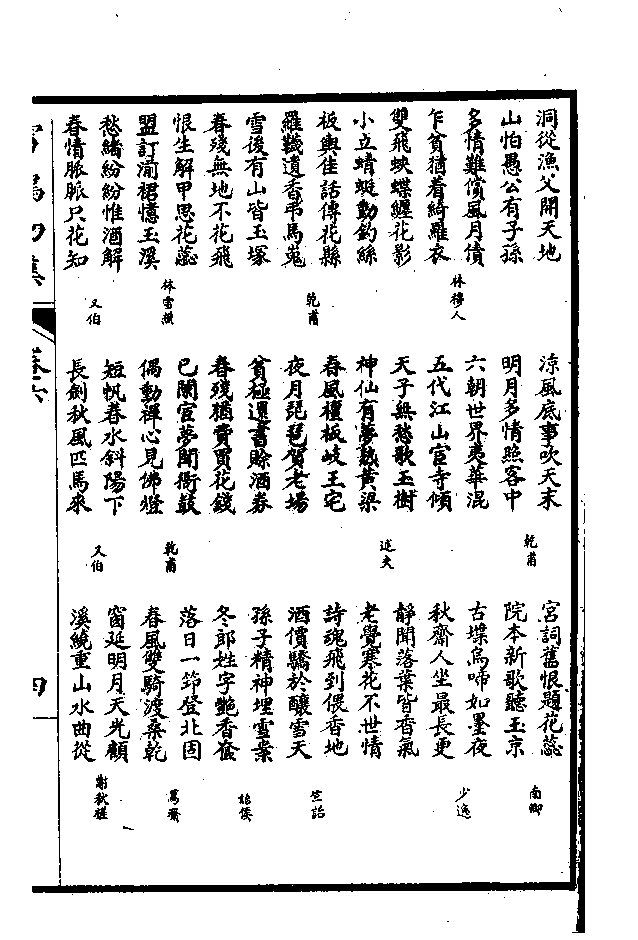 洞從漁父開天地
山怕愚公有子孫
多情難償風月債
乍貧猶着綺羅衣
林穆人
雙飛蛺蝶纏花影
小立蜻蜓動釣絲
板輿佳話傳花縣
羅韈遺香弔馬嵬
乾甫
雪後有山皆玉塚
春殘無地不花飛
恨生解甲思花蕊
盟訂湔裙憶玉溪
林雪
愁緒紛紛惟酒解
春情脈脈只花知
又伯
涼風底事吹天末
明月多情照客中
乾甫
六朝世界夷華混
五代江山宦寺傾
天子無愁歌玉樹
神仙有夢熟黃粱
述夫
春風檀板岐王宅
夜月琵琶賀老場
貧極還書賒酒券
春殘猶費買花錢
已闌宦夢聞衙鼓
偶動禪心見佛燈
乾甫
短帆春水斜陽下
長劍秋風匹馬來
又伯
宮詞舊恨題花蕊
院本新歌聽玉京
南卿
古堞烏啼如墨夜
秋齋人坐最長更
少逸
靜聞落葉皆香氣
老覺寒花不世情
詩魂飛到偎香地
酒價驕於釀雪天
竺詒
孫子精神埋雪案
冬郎姓字艷香奩
詒侯
落日一筇登北固
春風雙騎渡桑乾
篤齋
窗延明月天光顧
溪繞重山水曲從
謝秋槎
卷六
四